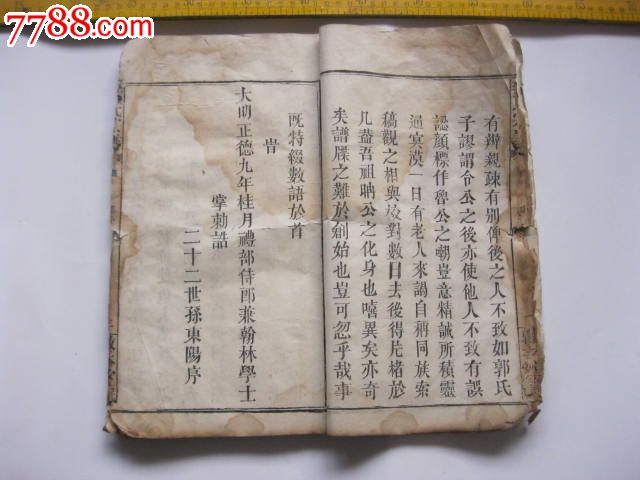 7788.com
有辨親疎有別俾後之人不致如郭氏
子謬謂令公之後亦使他人不致有誤
認顏標作魯公之嘲豈意精誠所積靈
通冥漠一日有老人來謁自稱同族索
稿觀之相與校對數日去後得片楮於
几蓋吾祖昞公之化身也嘻異矣亦奇
矣譜牒之難於創始也豈可忽乎哉事
旣特綴數語於首
旹
大明正德九年桂月禮部侍郎兼翰林學士
掌勅誥
二十二世孫東陽序